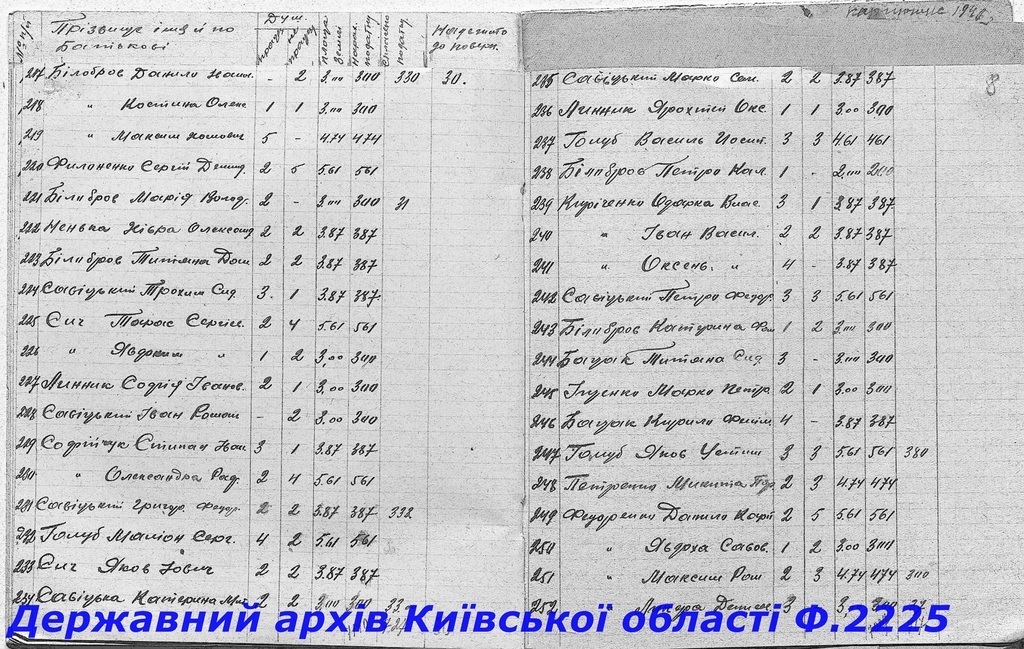 №№ п/п Прізвище імя й по Батькові Душ. працез. не працез. площа землі Нарах. податку Сплачено податку Належить до поверн.
217 Білобров Данило - 2 3,00 300 330 30.
218 " Костина Олекс. 1 1 3,00 300
219 " Максим 5 - 4.74 474
220 Филоненко Сергій Демид. 2 5 5.61 561
221 Білобров Марія Волод. 2 - 3,00 300 31
222 Ненька Хівра Олександ 2 2 3.87 387
223 Білобров Титяна Дан. 2 2 3.87 387
224 Савіцький Трохим Сид. 3. 1 3.87 387
225 Єич Тарас Сергій. 2 4 5.61 561
226 " Явдоким " 1 2 3,00 300
227 Линник Софія Іванов. 2 1 3,00 300
228 Савіцький Іван Роман - 2 3.00 300
229 Степан Іван 3 1 3.87 387
230 " Олександра 2 4 5.61 561
231 Савіцький Григор. Федор. 2 2 3.87 387 332
232 Голуб Серг. 4 2 5,61 561
233 Єич Яков Іович 2 2 3.87 387
234 Савіцька Катерина Мит. 2 2 3,00 300 33
1946
8
235 Савіцький Марко Сам. 2 2 3.87 387
236 Линник 1 1 3.00 300
237 Голуб Василь 3 3 4.61 461
238 Білобров Петро Кал. 1 - 2,00 200
239 Кириченко Одарка Влас. 3 1 3.87 387
240 " Іван Васил. 2 2 3.87 387
241 " Оксень. " 4 - 3.87 387
242 Савіцький Петро Федор 3 3 5.61 561
243 Білобров Катерина 1 2 3,00 300
244 Бацак Титяна Сид. 3 - 3,00 300
245 Іщенко Марко Петро 2 1 3.00 300
246 Бацак Кирило 4 - 3.87 387
247 Голуб Яков Устим 3 3 5.61 561 380
248 Петренко Микита 2 3 4.74 474
249 Федоренко Данило 2 5 5.61 561
250 " Явдоха Савов. 1 2 3.00 300
251 " Максим Ром 2 3 4.74 474 300
252 3
Державний архів Київської області Ф.2225